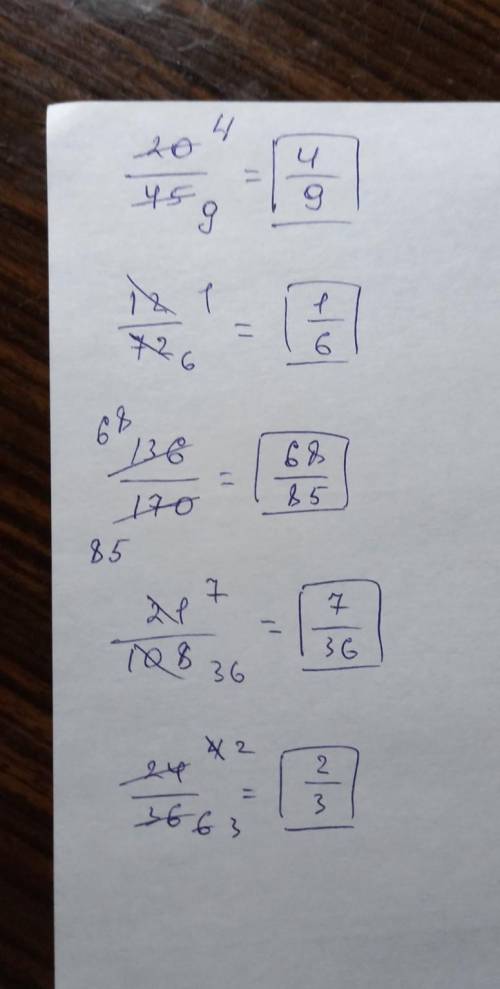 20/45 4 9 = 4/9
12/72 1 6 = 1/6
68 136/170 85 = 68/85
21/108 7 36 = 7/36
24/36 4 2 6 3 = 2/3